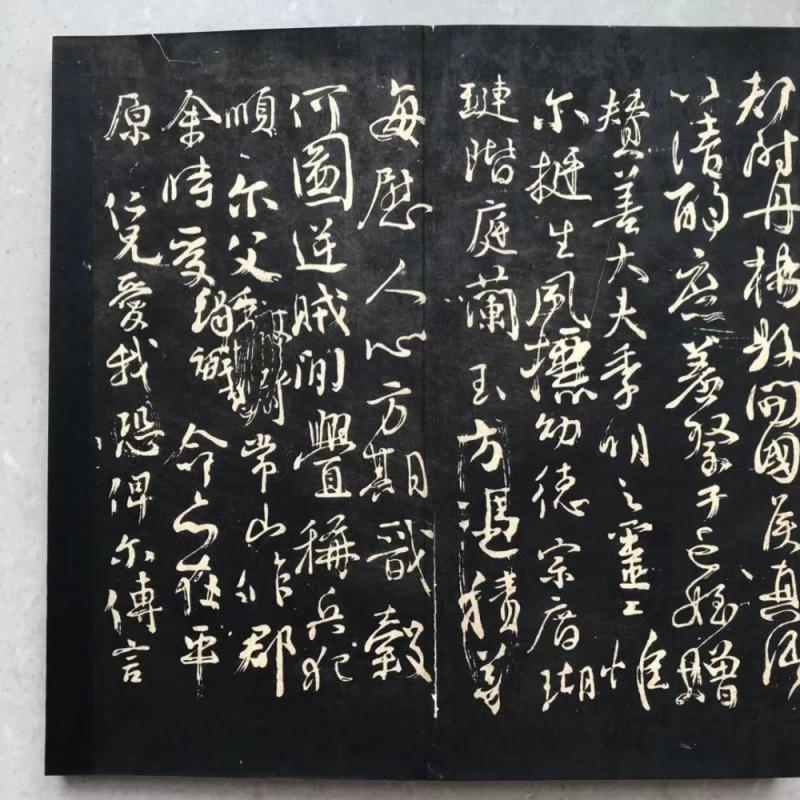 都尉丹楊縣開國侯真卿
以清酌庶羞祭于亡姪贈
賛善大夫季明之靈曰惟
尔挺生夙摽幼德宗廟瑚
璉階庭蘭玉方憑積善
每慰人心方期戩穀
何圖逆賊閒舋稱兵犯
順尔父竭誠常山作郡
余時受命亦在平
原仁兄愛我恐俾尔傳言